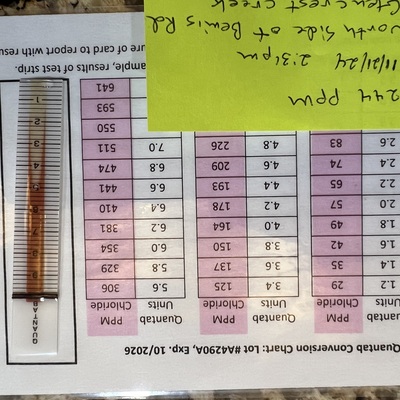 Quantab Conversion Chart: Lot #A4290A, Exp. 10/2026
Quantab Units PPM Chloride Quantab Units PPM Chloride Quantab Units PPM Chloride
1.2 29 3.4 125 5.6 306
1.4 35 3.6 137 5.8 329
1.6 42 3.8 150 6.0 354
1.8 49 4.0 164 6.2 381
2.0 57 4.2 178 6.4 410
2.2 65 4.4 193 6.6 441
2.4 74 4.6 209 6.8 474
2.6 83 4.8 226 7.0 511
550
593
641
244 PPM
11/21/24 2:31pm
North side of Bemis Rd
creek
results of test strip.
of card to report with
QUANTAB
9
8
7
6
5
4
3
2
1